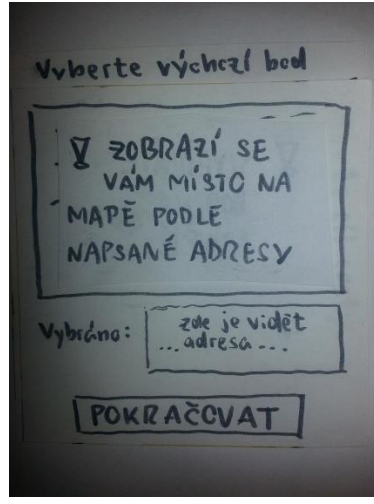 Vyberte výchozí bod
ZOBRAZÍ SE
VÁM MÍSTO NA
MAPĚ PODLE
NAPSANÉ ADRESY
Vybráno:
zde je vidět
...adresa...
POKRAČOVAT